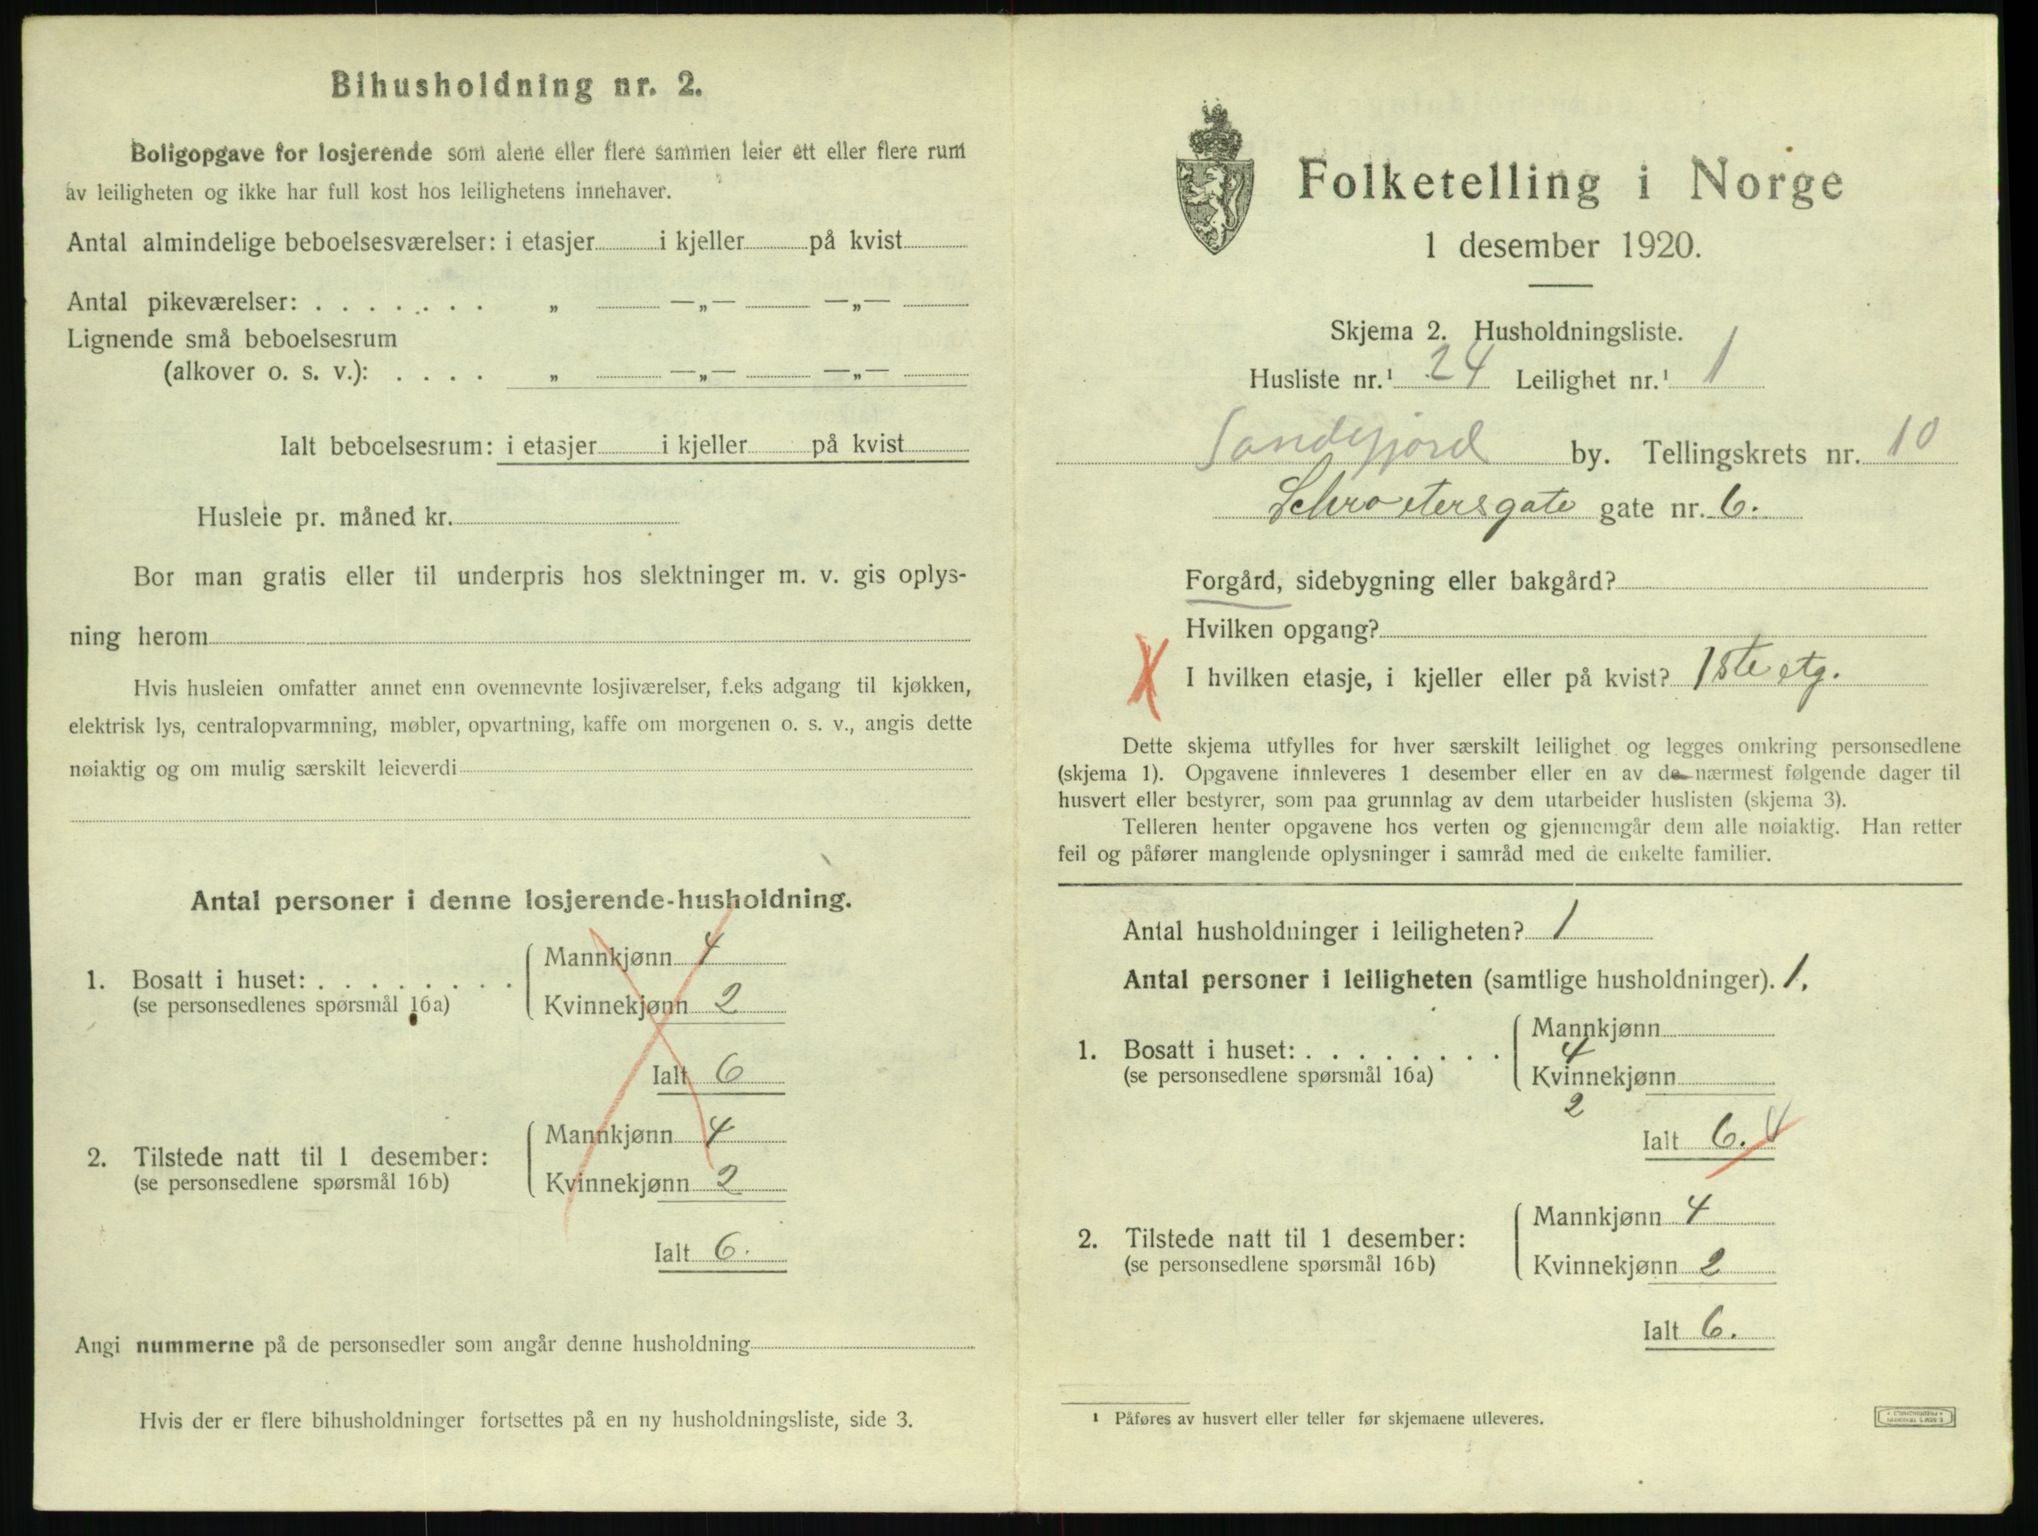 Bihusholdning nr. 2.
Boligopgave for losjerende som alene eller flere sammen leier ett eller flere rum
av leiligheten og ikke har full kost hos leilighetens innehaver.
Antal almindelige beboelsesværelser: i etasjer i kjeller på kvist
Antal pikeværelser: . . . . . . . „ —„— —„—
Lignende små beboelsesrum
(alkover o. s. v.): . . . . „ —„— —„—
Ialt beboelsesrum: i etasjer i kjeller på kvist
Husleie pr. måned kr.
Bor man gratis eller til underpris hos slektninger m. v. gis oplys-
ning herom
Hvis husleien omfatter annet enn ovennevnte losjiværelser, f.eks adgang til kjøkken,
elektrisk lys, centralopvarmning, møbler, opvartning, kaffe om morgenen o. s. v., angis dette
nøiaktig og om mulig særskilt leieverdi
Antal personer i denne losjerende-husholdning.
Mannkjønn 4
1. Bosatt i huset: . . . . . . . .
(se personsedlenes spørsmål 16a)
Kvinnekjønn 2
Ialt 6
Mannkjønn 4
2. Tilstede natt til 1 desember:
(se personsedlene spørsmål 16b)
Kvinnekjønn 2
Ialt 6.
Angi nummerne på de personsedler som angår denne husholdning
Hvis der er flere bihusholdninger fortsettes på en ny husholdningsliste, side 3.
Folketelling i Norge
1 desember 1920.
Skjema 2. Husholdningsliste.
Husliste nr.¹ 24 Leilighet nr.¹ 1
Sandefjord by. Tellingskrets nr. 10
Schroetersgate gate nr. 6.
Forgård, sidebygning eller bakgård?
Hvilken opgang?
X I hvilken etasje, i kjeller eller på kvist? 1ste etg.
Dette skjema utfylles for hver særskilt leilighet og legges omkring personsedlene
(skjema 1). Opgavene innleveres 1 desember eller en av de nærmest følgende dager til
husvert eller bestyrer, som paa grunnlag av dem utarbeider huslisten (skjema 3).
Telleren henter opgavene hos verten og gjennemgår dem alle nøiaktig. Han retter
feil og påfører manglende oplysninger i samråd med de enkelte familier.
Antal husholdninger i leiligheten? 1
Antal personer i leiligheten (samtlige husholdninger). 1.
Mannkjønn
4
1. Bosatt i huset: . . . . . . . .
(se personsedlene spørsmål 16a)
Kvinnekjønn
2
Ialt 6. 4
Mannkjønn 4
2. Tilstede natt til 1 desember:
(se personsedlene spørsmål 16b)
Kvinnekjønn 2
Ialt 6.
¹ Påføres av husvert eller teller før skjemaene utleveres.